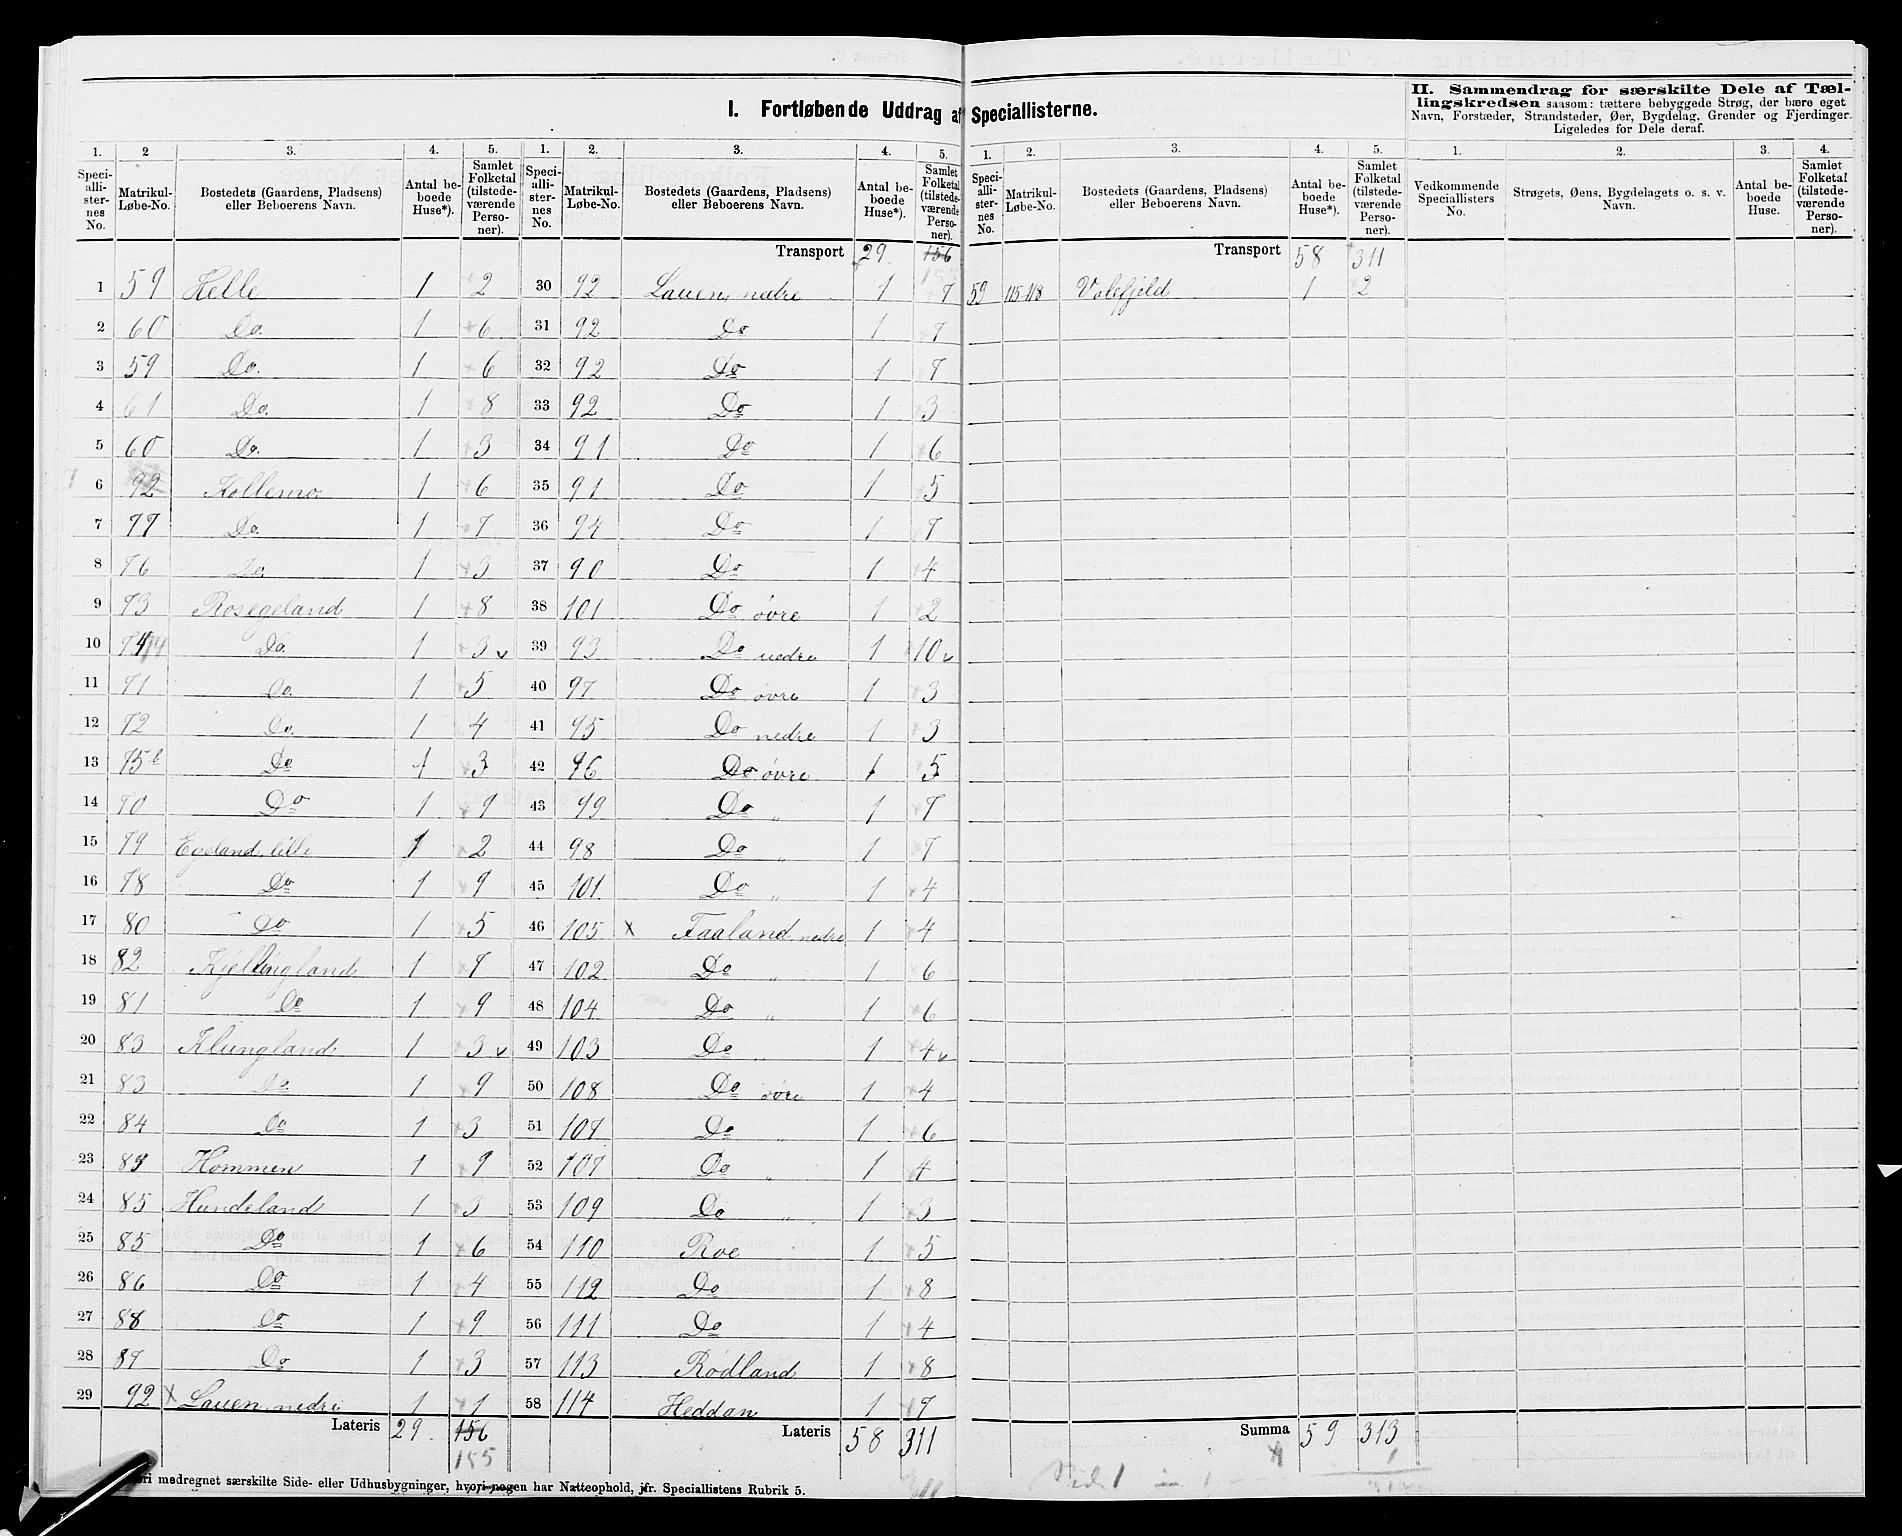 I. Fortløbende Uddrag af Speciallisterne.
II. Sammendrag for særskilte Dele af Tællingskredsen saasom: tættere bebyggede Strøg, der bære eget
Navn, Forstæder, Strandsteder, Øer, Bygdelag, Grender og Fjerdinger.
Ligeledes for Dele deraf.
1. 2 3. 4. 5. 1. 2. 3. 4. 5. 1. 2. 3. 4. 5. 1. 2. 3. 4.
Speciallisternes No. Matrikul-Løbe-No. Bostedets (Gaardens, Pladsens) eller Beboerens Navn. Antal beboede Huse*). Samlet Folketal (tilstedeværende Personer).
Speciallisternes No. Matrikul-Løbe-No. Bostedets (Gaardens, Pladsens) eller Beboerens Navn. Antal beboede Huse*). Samlet Folketal (tilstedeværende Personer).
Speciallisternes No. Matrikul-Løbe-No. Bostedets (Gaardens, Pladsens) eller Beboerens Navn. Antal beboede Huse*). Samlet Folketal (tilstedeværende Personer).
Vedkommende Speciallisters No. Strøgets, Øens, Bygdelagets o. s. v. Navn. Antal beboede Huse. Samlet Folketal (tilstedeværende Personer).
1 59 Helle 1 2
2 60 Do. 1 6
3 59 Do. 1 6
4 61 Do. 1 8
5 60 Do. 1 3
6 92 Kollemo 1 6
7 77 Do. 1 7
8 76 Do. 1 3
9 73 Rosegeland 1 8
10 74 Do. 1 3 v
11 71 Do. 1 5
12 72 Do. 1 4
13 75 b Do 1 3
14 70 Do 1 9
15 79 Egeland, lille 1 2
16 78 Do 1 9
17 80 Do 1 5
18 82 Kjellingland 1 7
19 81 Do 1 9
20 83 Klungland 1 3 v
21 83 Do 1 9
22 84 Do 1 3
23 89 Hommen 1 9
24 85 Hundeland 1 3
25 85 Do 1 6
26 86 Do 1 4
27 88 Do 1 9
28 87 Do 1 3
29 92 x Lauen, nedre 1 1
Lateris 29. 156
155
Transport 29. 156
30 92 Lauen, nedre 1 7
31 92 Do 1 7
32 92 Do 1 7
33 92 Do 1 3
34 91 Do 1 6
35 91 Do 1 5
36 94 Do 1 7
37 90 Do 1 4
38 101 Do øvre 1 2
39 93 Do nedre 1 10 v
40 97 Do øvre 1 3
41 95 Do nedre 1 3
42 96 Do øvre 1 5
43 99 Do " 1 7
44 98 Do " 1 7
45 101. Do " 1 4
46 105 x Faaland nedre 1 4
47 102 Do " 1 6
48 104 Do " 1 6
49 103 Do " 1 4 v
50 108 Do øvre 1 4
51 107 Do " 1 6
52 107 Do " 1 4
53 109 Do " 1 3
54 110 Roe 1 5
55 112 Do 1 8
56 111 Do 1 4
57 113 Rødland 1 8
58 114 Heddan 1 7
Lateris 58 311
Transport 58 311
59 115-118 Valefjeld 1 2
Summa 59 313
medregnet særskilte Side- eller Udhusbygninger, hvori nogen har Natteophold, jfr. Speciallistens Rubrik 5.